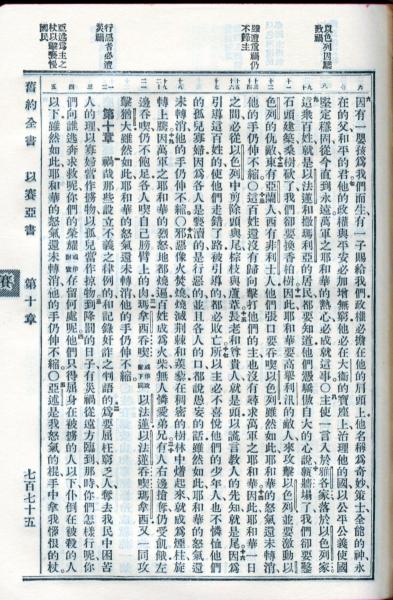 以色列因驕
致禍
雖遭重禍仍
不歸主
行惡者必遭
災禍
亞述爲主之
杖以擊褻慢
國民
因有一嬰孩爲我們而生有一子賜給我們政權必擔在他的肩頭上他名稱爲奇妙策士全能的神永
在的父和平的君他的政權與平安必加增無窮他必在大衛的寶座上治理他的國以公平公義使國
堅定穩固從今直到永遠萬軍之耶和華的熱心必成就這事○主使一言入於雅各家落於以色列家
這衆百姓就是以法蓮和撒瑪利亞的居民都要知道他們憑驕傲自大的心說磚牆塌了我們卻要鑿
石頭建築桑樹砍了我們卻要換香柏樹因此耶和華要高舉利汛的敵人來攻擊以色列並要激動以
色列的仇敵東有亞蘭人西有非利士人他們張口要吞喫以色列雖然如此耶和華的怒氣還未轉消
他的手仍伸不縮○這百姓還沒有歸向擊打他們的主也沒有尋求萬軍之耶和華因此耶和華一日
之間必從以色列中剪除頭與尾棕枝與蘆葦長老和尊貴人就是頭以謊言教人的先知就是尾因爲
引導這百姓的使他們走錯了路被引導的都必敗亡所以主必不喜悅他們的少年人也不憐恤他們
的孤兒寡婦因爲各人是褻瀆的是行惡的並且各人的口都說愚妄的話雖然如此耶和華的怒氣還
未轉消他的手仍伸不縮○邪惡像火焚燒燒滅荊棘和蒺藜在稠密的樹林中燃起來就成爲煙柱旋
轉上騰因萬軍之耶和華的烈怒地都燒遍百姓成爲火柴無人憐愛弟兄有人右邊搶奪仍受飢餓左
邊吞喫仍不飽足各人喫自己膀臂上的肉瑪拿西吞喫以法蓮以法蓮吞喫瑪拿西又一同攻
擊猶大雖然如此耶和華的怒氣還未轉消他的手仍伸不縮
第十章 禍哉那些設立不義之律例的和記錄奸詐之判語的爲要屈枉窮乏人奪去我民中困苦
人的理以寡婦當作擄物以孤兒當作掠物到降罰的日子有災禍從遠方臨到那時你們怎樣行呢你
們向誰逃奔求救呢你們的榮耀或作財寶存留何處呢他們只得屈身在被擄的人以下仆倒在被殺的人
以下雖然如此耶和華的怒氣還未轉消他的手仍伸不縮○亞述是我怒氣的棍手中拿我惱恨的杖
舊約全書 以賽亞書 第十章 七百七十五
賽